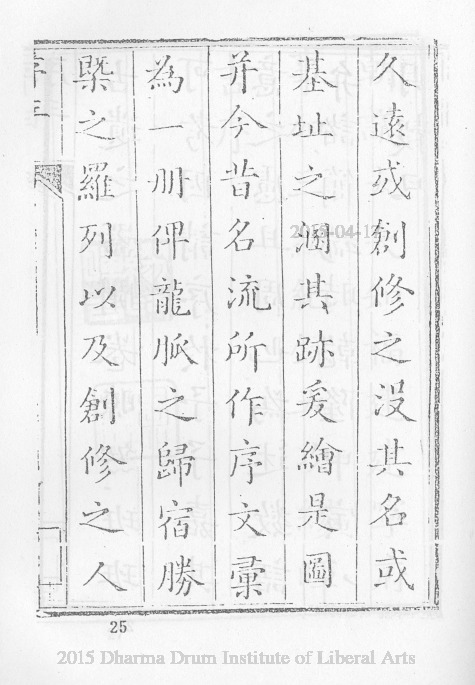 久遠或創修之沒其名或
基址之湮其跡爰繪是圖
并今昔名流所作序文彙
為一冊俾龍脈之歸宿勝
槩之羅列以及創修之人
25
2015 Dharma Drum Institute of Liberal Arts